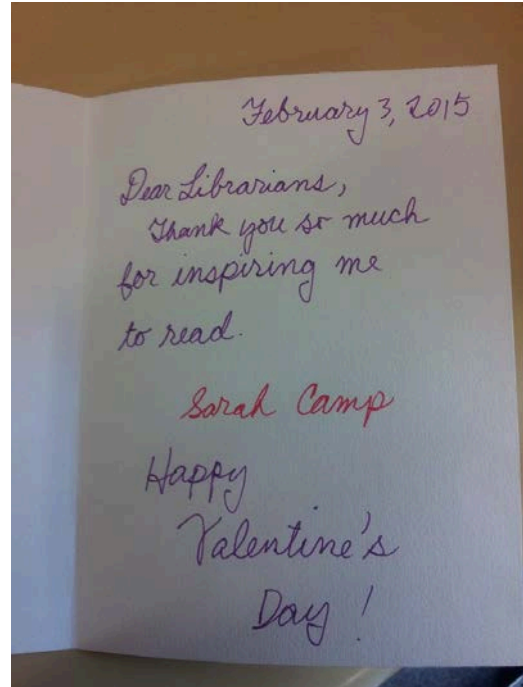 February 3, 2015
Dear Librarians,
Thank you so much
for inspiring me
to read.
Sarah Camp
Happy
Valentine's
Day!